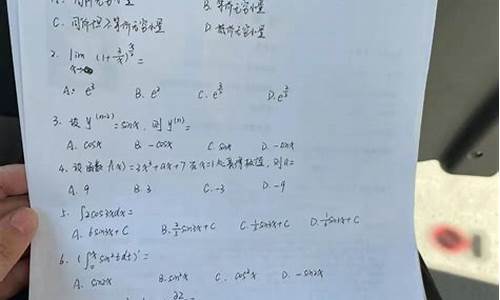 A. 同阶无穷小量 B. 等价无穷小量
C. 同阶但不等价无穷小量 D.
2. lim (1+2/x)
A. e³ B. e² C. D.
3. 设 y⁽ⁿ⁻²⁾ = sinx, 则 y⁽ⁿ⁾ =
A. cosx B. -cosx C. sinx D. -sinx
4. 设函数 f(x)=2x³+ax+7 在x=1处取得极值, 则a=
A. 9 B. 3 C. -3 D. -9
5. ∫2cos3xdx=
A. 6sin3x+C B. 2/3 sin3x+C C. 1/3 sin3x+C D. 1/6 sin3x+C
6. (∫₀ˣ sin²tdt)' =
A. sin2x B. sin²x C. cos²x D. -sin2x